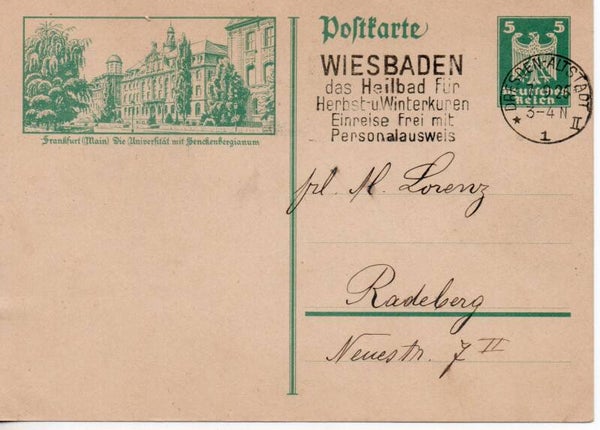 Postkarte
5 5
Deutsches
Reich
WIESBADEN
das Heilbad für
Herbst-u.Winterkuren
Einreise frei mit
Personalausweis
DRESDEN-ALTSTADT
3-4 N
* 1 II
Frankfurt (Main) Die Universität mit Senckenbergianum
Frl. M. Lorenz
Radeberg
Neuestr. 7 II